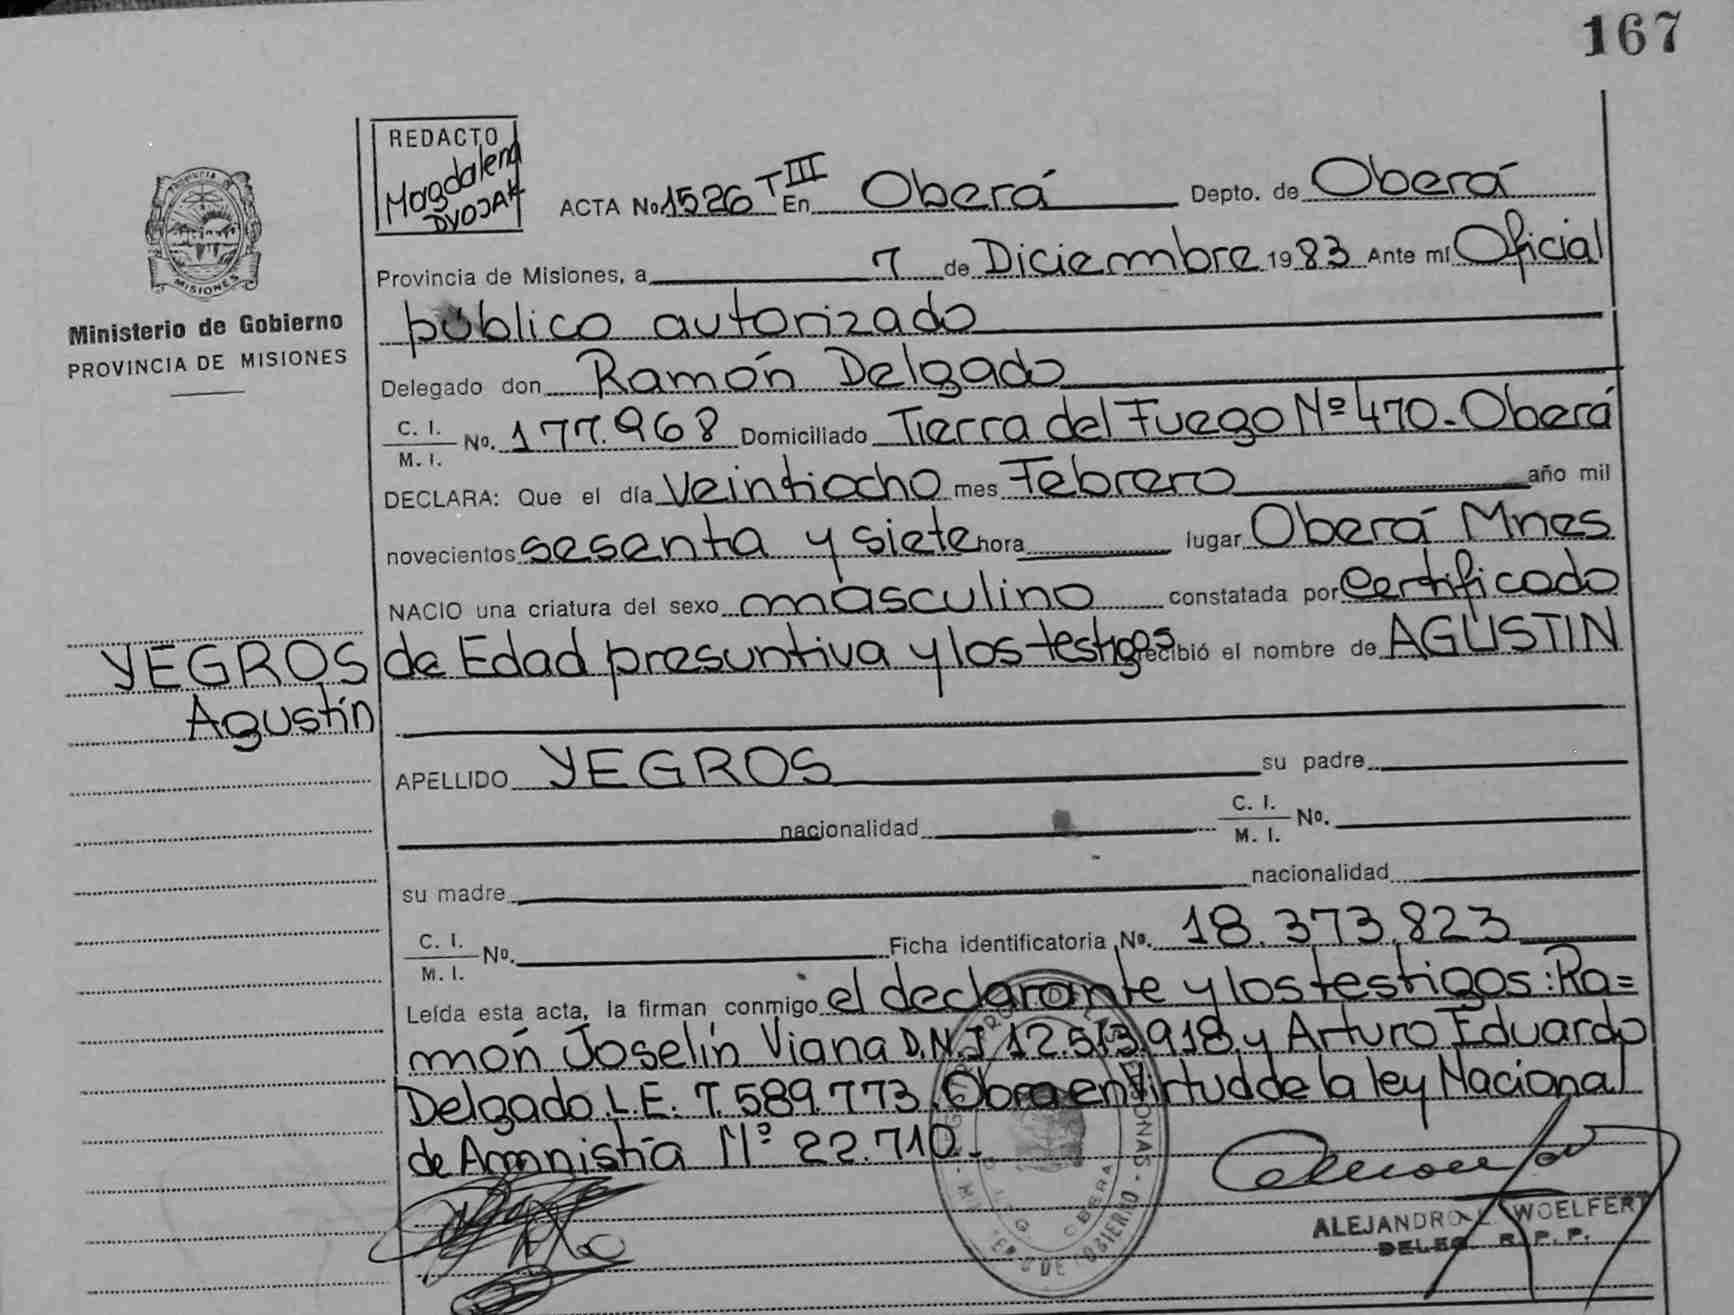 167
REDACTO
Magdalena
DVOJAK
ACTA No. 1526 T III En Oberá Depto. de Oberá
Provincia de Misiones, a 7 de Diciembre 1983 Ante mi Oficial
público autorizado
MISIONES
Ministerio de Gobierno
PROVINCIA DE MISIONES
Delegado don Ramón Delgado
C. I.
M. I. No. 177.968 Domiciliado Tierra del Fuego Nº 470 - Oberá
DECLARA: Que el día Veintiocho mes Febrero año mil
novecientos sesenta y siete hora lugar Oberá Mnes
NACIO una criatura del sexo masculino constatada por Certificado
de Edad presuntiva y los testigos recibió el nombre de AGUSTIN
YEGROS
Agustín
APELLIDO YEGROS su padre
nacionalidad C. I.
M. I. No.
su madre nacionalidad
C. I.
M. I. No. Ficha identificatoria No. 18.373.823
Leída esta acta, la firman conmigo el declarante y los testigos: Ra=
món Joselín Viana D.N.I 12.513.918 y Arturo Eduardo
Delgado L.E. 7.589.773. Obra en Virtud de la ley Nacional
de Amnistía Nº 22.710.
ALEJANDRO WOELFERT
DELEG. R. P. P.